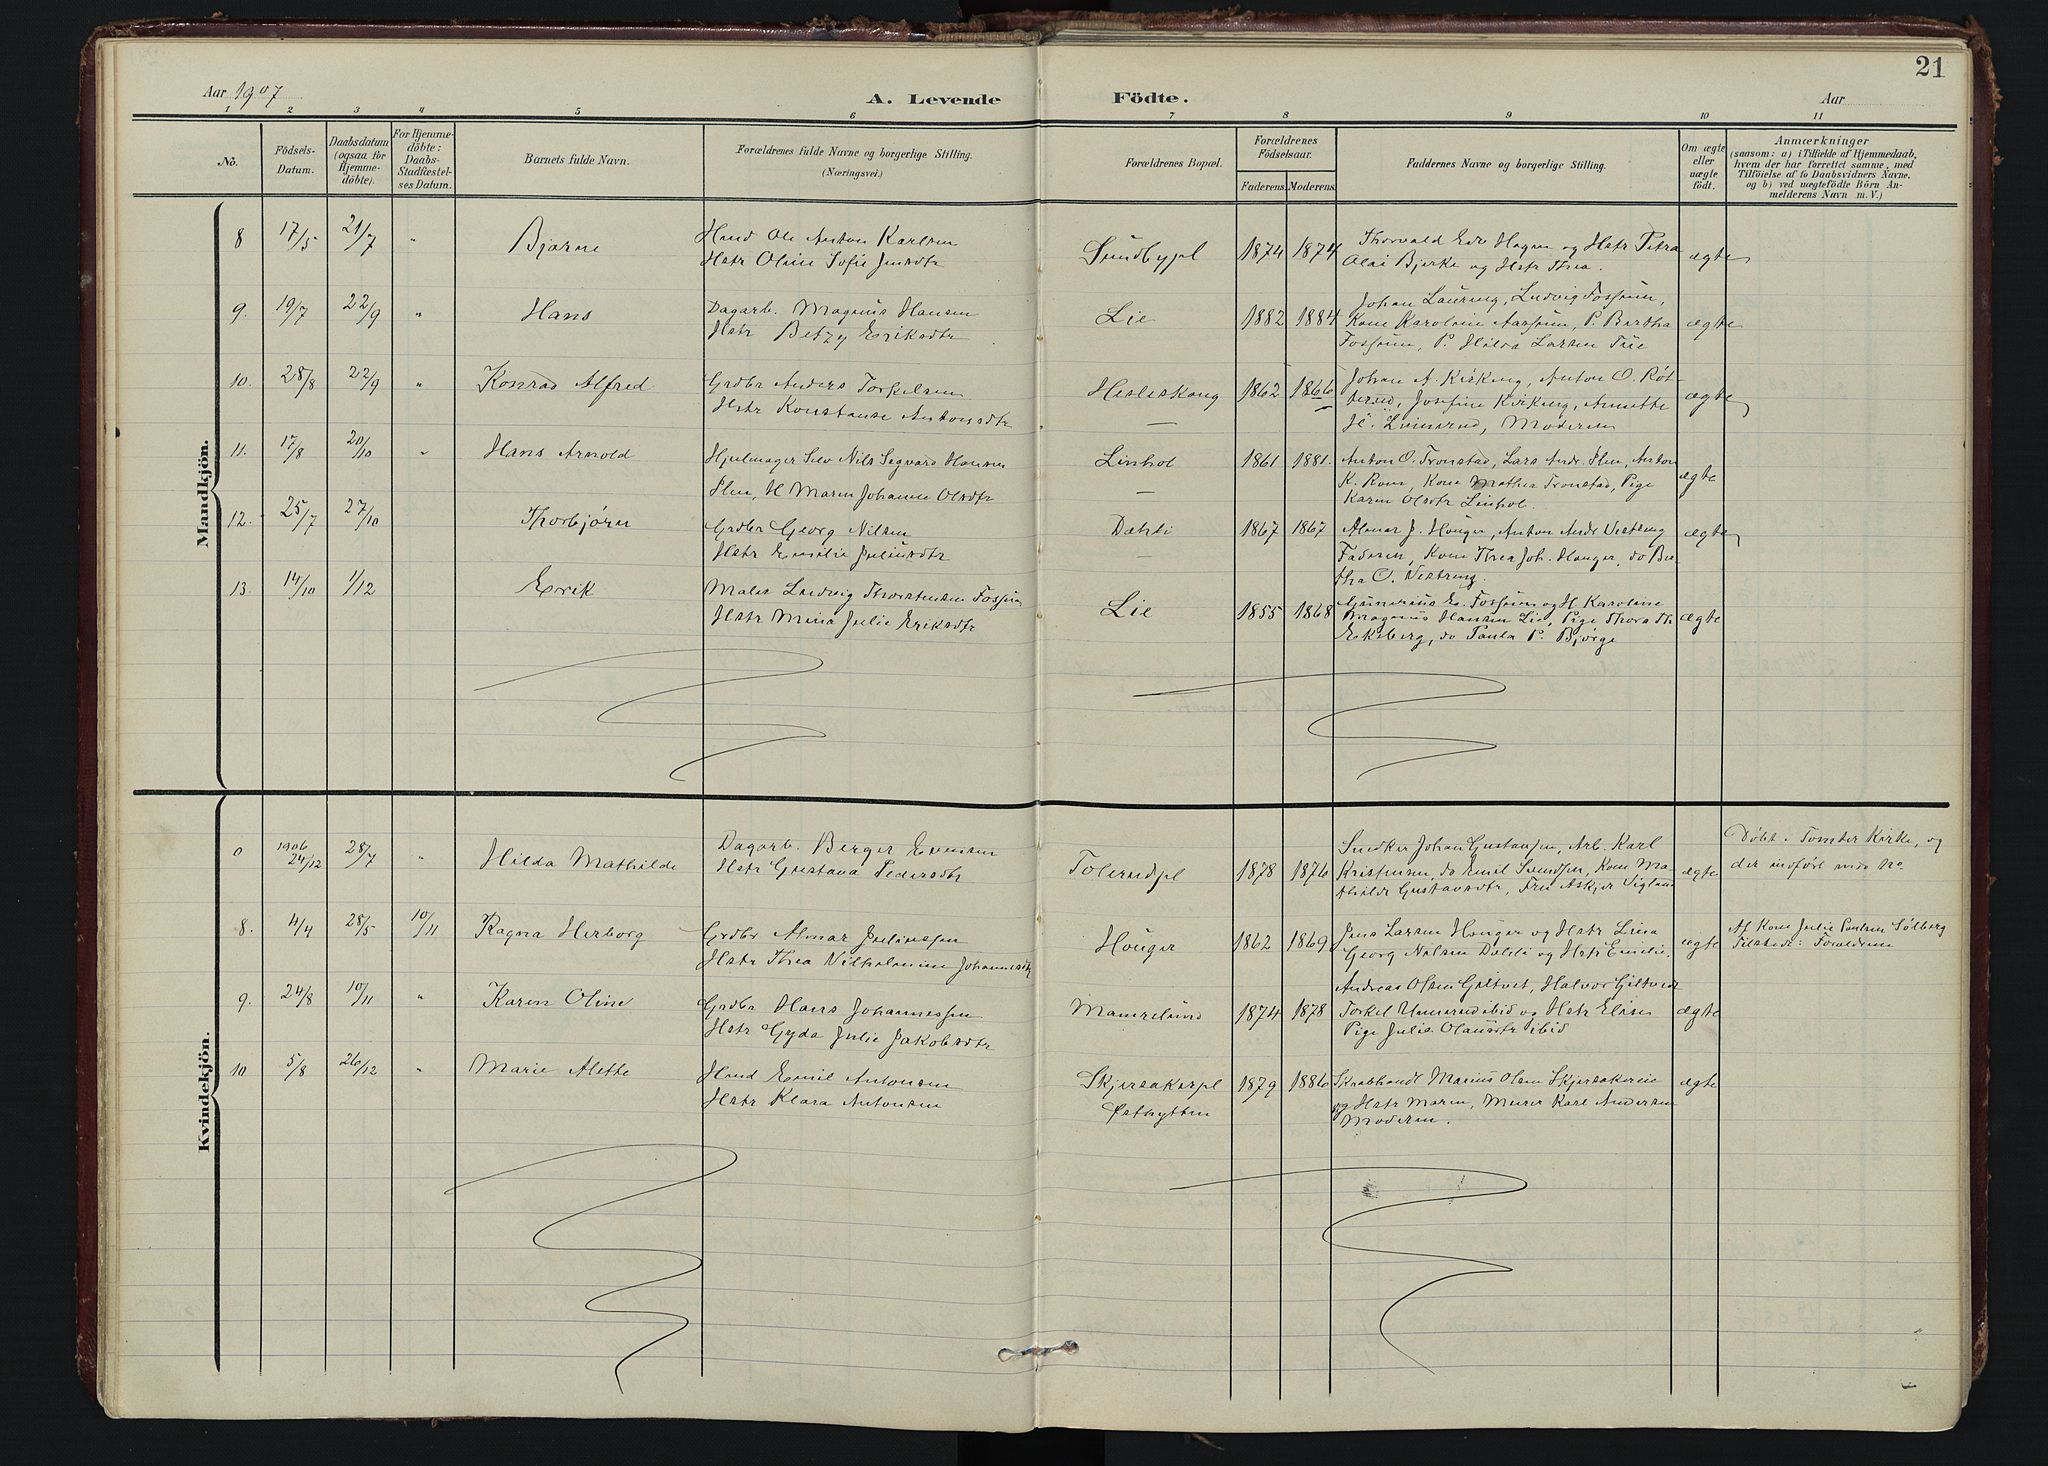 21
Aar 1907
A. Levende Födte.
Aar
1 2 3 4 5 6 7 8 9 10 11
No.
Födsels-
Datum.
Daabsdatum
(ogsaa for
Hjemme-
döbte).
For Hjemme-
döbte:
Daabs-
Stadfæstel-
ses Datum.
Barnets fulde Navn.
Forældrenes fulde Navne og borgerlige Stilling.
(Næringsvei.)
Forældrenes Bopæl.
Forældrenes
Födselsaar.
Faderens.
Moderens.
Faddernes Navne og borgerlige Stilling.
Om ægte
eller
uægte
födt.
Anmærkninger
(saasom: a) i Tilfælde af Hjemmedaab,
hvem der har forrettet samme, med
Tilföielse af to Daabsvidners Navne,
og b) ved uægtefödte Börn An-
melderens Navn m. V.)
Mandkjön.
8 17/5 21/7 " Bjarne
Hmd Ole Anton Karlsen
Hstr Oline Sofie Jensdtr
Sundbypl 1874 1874
Thorvald Edv Hagen og Hstr Petra
Olai Bjerke og Hstr Thea.
ægte
9. 19/7 22/9 " Hans
Dagarb. Magnus Hansen
Hstr Betzy Eriksdtr
Lie 1882 1884
Johan Lauring, Ludvig Fossum,
Kone Karoline Aassum, P. Bertha
Fossum, P. Hilda Larsen
ægte
10. 28/8 22/9 " Konrad Alfred
Grdbr Anders Torkelsen
Hstr Konstanse Antonsdtr
Hesleskoug 1862 1866
Johan A. Kirking, Anton O. Röt-
terud, Josefine Kirking, Annette
Moderen
ægte
11. 17/8 20/10 " Hans Arnold
Hjulmager Selv Nils Segvard Hansen
Slm, H Maren Johanne Olsdtr
Linhol 1861 1881.
Anton O. Tronstad, Lars Andr. Slm, Anton
K. Rom, Kone Mathea Tronstad, Pige
Karen Olsdtr Linhol.
ægte
12. 25/7 27/10 Thorbjörn
Grdbr Georg Nilsen
Hstr Emilie Juliusdtr
Dæhli 1867 1867
Almar J. Houger, Anton Andr Vestreng
Faderen, Kone Thea Joh. Houger, do Ber-
tha O. Vestreng.
ægte
13. 14/10 1/12 Erik
Maler Ludvig Thorstensen Fossum
Hstr Mina Julie Eriksdtr
Lie 1855 1868
Gunerius E. Fossum og H. Karoline
Magnus Hansen Lie, Pige Thora Th
Ekeberg, do Paula P. Bjørge
ægte
Kvindekjön.
0 1906 24/12 28/7 " Hilda Mathilde
Dagarb. Berger Evensen
Hstr Gustava Pedersdtr
Tolerudpl 1878 1876
Snedker Johan Gustavsen, Arb. Karl
Kristensen, do Emil Svendsen, Kone Ma-
thilde Gustavsdtr, Fru Askjer Vigland
ægte
Døbt i Tomter Kirke, og
der indført med No
8. 4/4 28/5 10/11 Ragna Herborg
Grdbr Almar Juliussen
Hstr Thea Vilhelmine Johannesdtr
Houger 1862 1869
Jens Larsen Houger og Hstr Lina
Georg Nilsen Dæhli og Hstr Emilie.
ægte
Af Kone Julie Paulsen Sølberg
Tilstede: Forældrene
9. 24/8 10/11 " Karen Oline
Grdbr Hans Johannessen
Hstr Gyda Julie Jakobsdtr
Mamrelund 1874 1878
Andreas Olsen Giltvet, Halvor Giltvedt
Torkel Unnerud ibid og Hstr Elise
Pige Julie Olausdtr ibid
ægte
10 5/8 26/12 " Marie Alette
Hmd Emil Antonsen
Hstr Klara Antonsen
Skjersakerpl
Østhytten
1879 1886
Skrabhandl Marius Olsen Skjersakereie
og Hstr Maren, Murer Karl Andersen
Moderen.
ægte